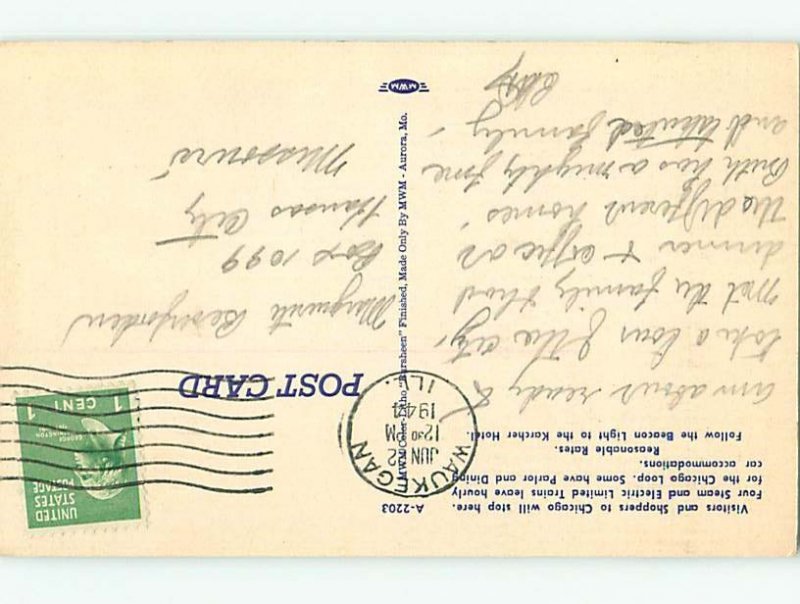 Visitors and Shoppers to Chicago will stop here.
Four Steam and Electric Limited Trains leave hourly
for the Chicago Loop. Some have Parlor and Dining
car accommodations.
Reasonable Rates.
Follow the Beacon Light to the Karcher Hotel.
A-2203
am about ready to
take a tour of the city,
met the family & had
dinner & coffee at
the different homes.
Ruth has a mighty fine
and talented family.
MWM Color-Litho "Earsheen" Finished, Made Only By MWM - Aurora, Mo.
MWM
WAUKEGAN
ILL.
JUN 22
12 30 PM
1944
UNITED
STATES
POSTAGE
GEORGE
WASHINGTON
1 CENT 1
POST CARD
Marguerite
Box 1099
Kansas City
Missouri